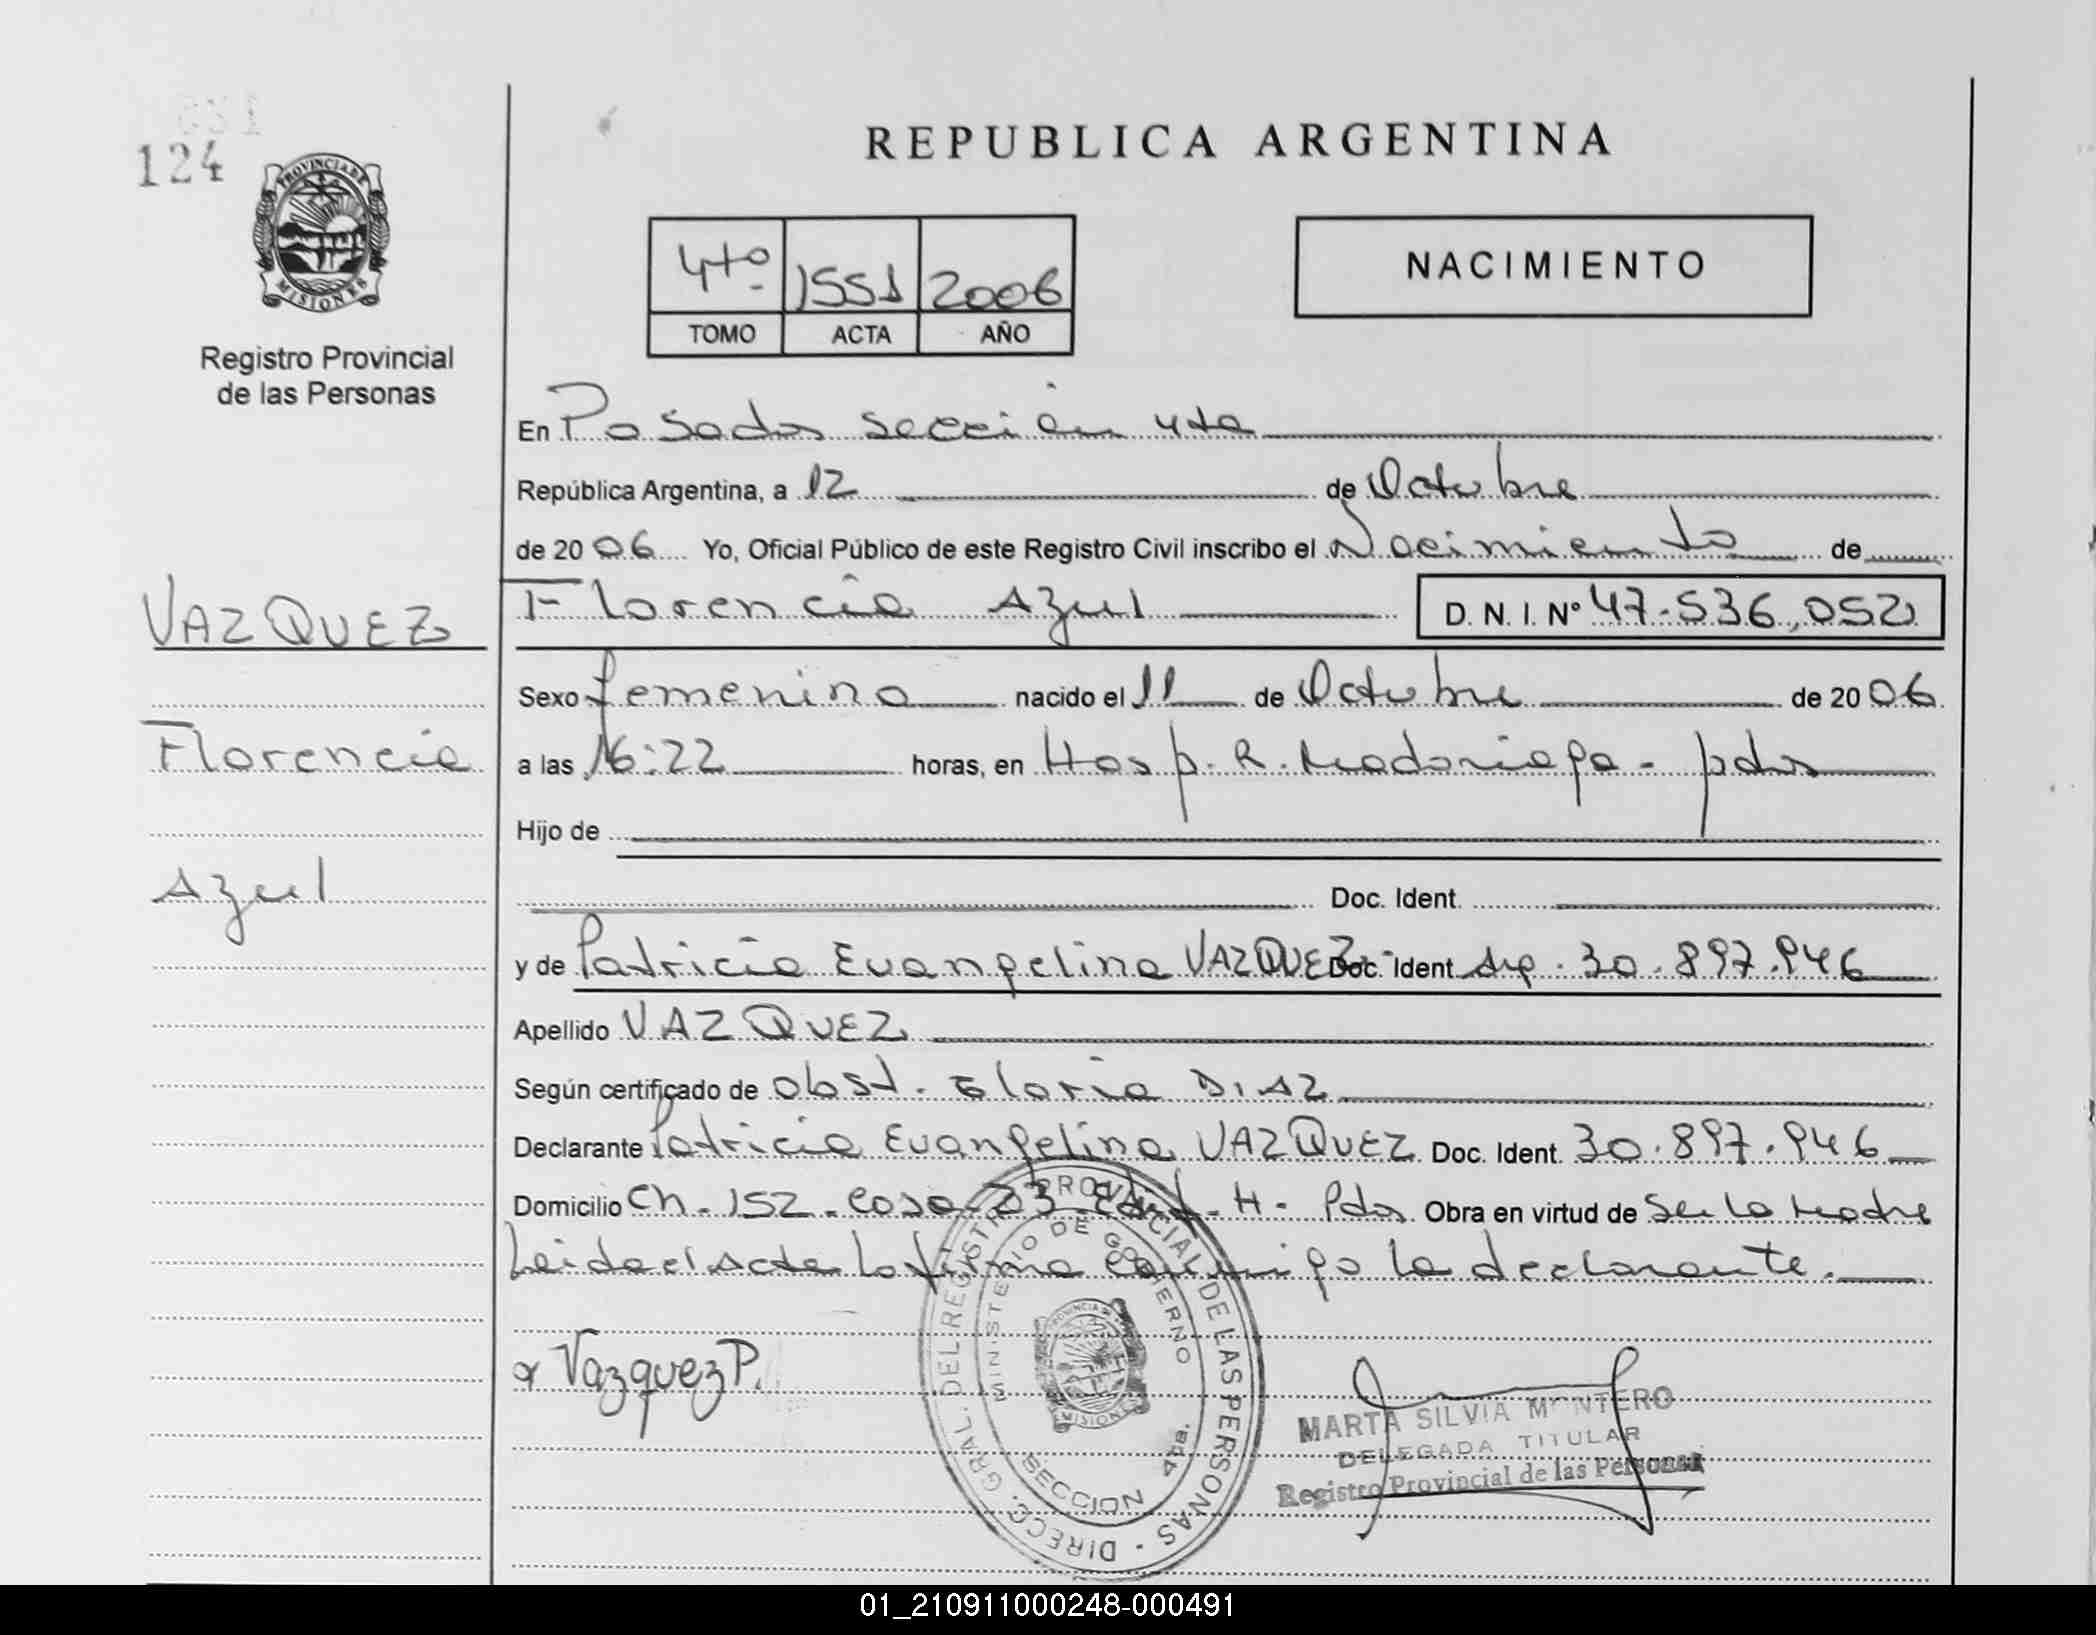 124
PROVINCIA DE
MISIONES
Registro Provincial
de las Personas
REPUBLICA ARGENTINA
4to 1551 2006
TOMO ACTA AÑO
NACIMIENTO
En Posadas sección 4ta
República Argentina, a 12 de Octubre
de 2006 Yo, Oficial Público de este Registro Civil inscribo el Nacimiento de
Florencia Azul D. N. I. Nº 47.536,052
VAZQUEZ
Florencia
Azul
Sexo femenino nacido el 11 de Octubre de 2006
a las 16:22 horas, en Hosp. R. Madariaga - pdas
Hijo de
Doc. Ident.
y de Patricia Evangelina VAZQUEZ Doc. Ident. Arg. 30.897.946
Apellido VAZQUEZ
Según certificado de Obst. Gloria DIAZ
Declarante Patricia Evangelina VAZQUEZ Doc. Ident. 30.897.946
Domicilio Ch. 152 - Casa 23 - Edif. H - Pdas Obra en virtud de ser la madre
Leida el Acta la firma conmigo la declarante.
Vazquez P.
DIRECC. GRAL. DEL REGISTRO PROVINCIAL DE LAS PERSONAS
MINISTERIO DE GOBIERNO
PROVINCIA DE
MISIONES
SECCION 4ta.
MARTA SILVIA MONTERO
DELEGADA TITULAR
Registro Provincial de las Personas
01_210911000248-000491